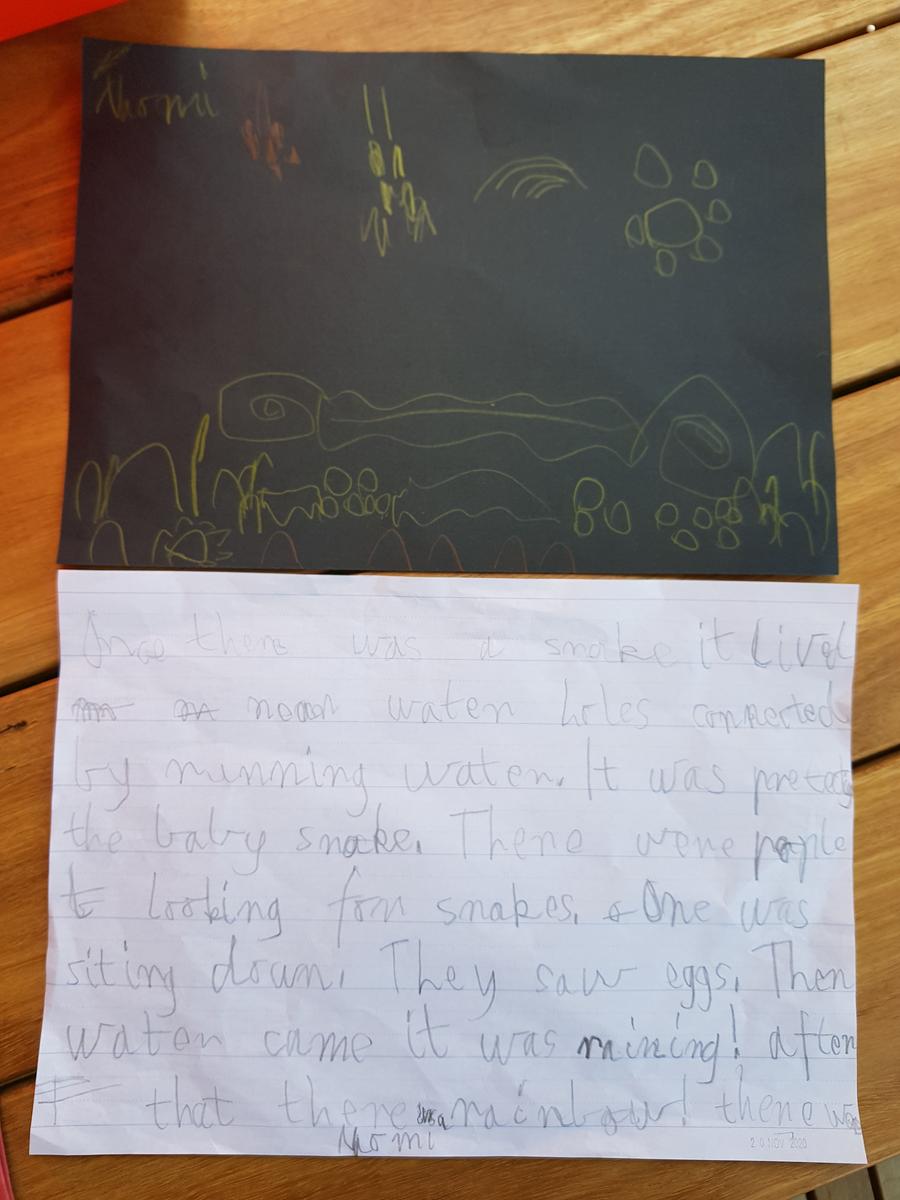 Thomi
Once there was a snake it Lived
near water holes connected
by running water. It was pretect
the baby snake. There were people
looking for snakes. One was
siting down. They saw eggs. Then
water came it was raining! after
that there was a rainbow! there was
Thomi
20 NOV 2020